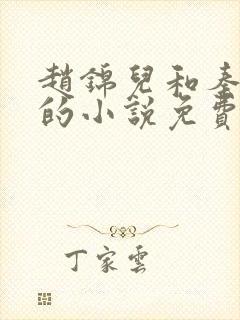 趙錦兒和秦
的小說免費
丁家雲